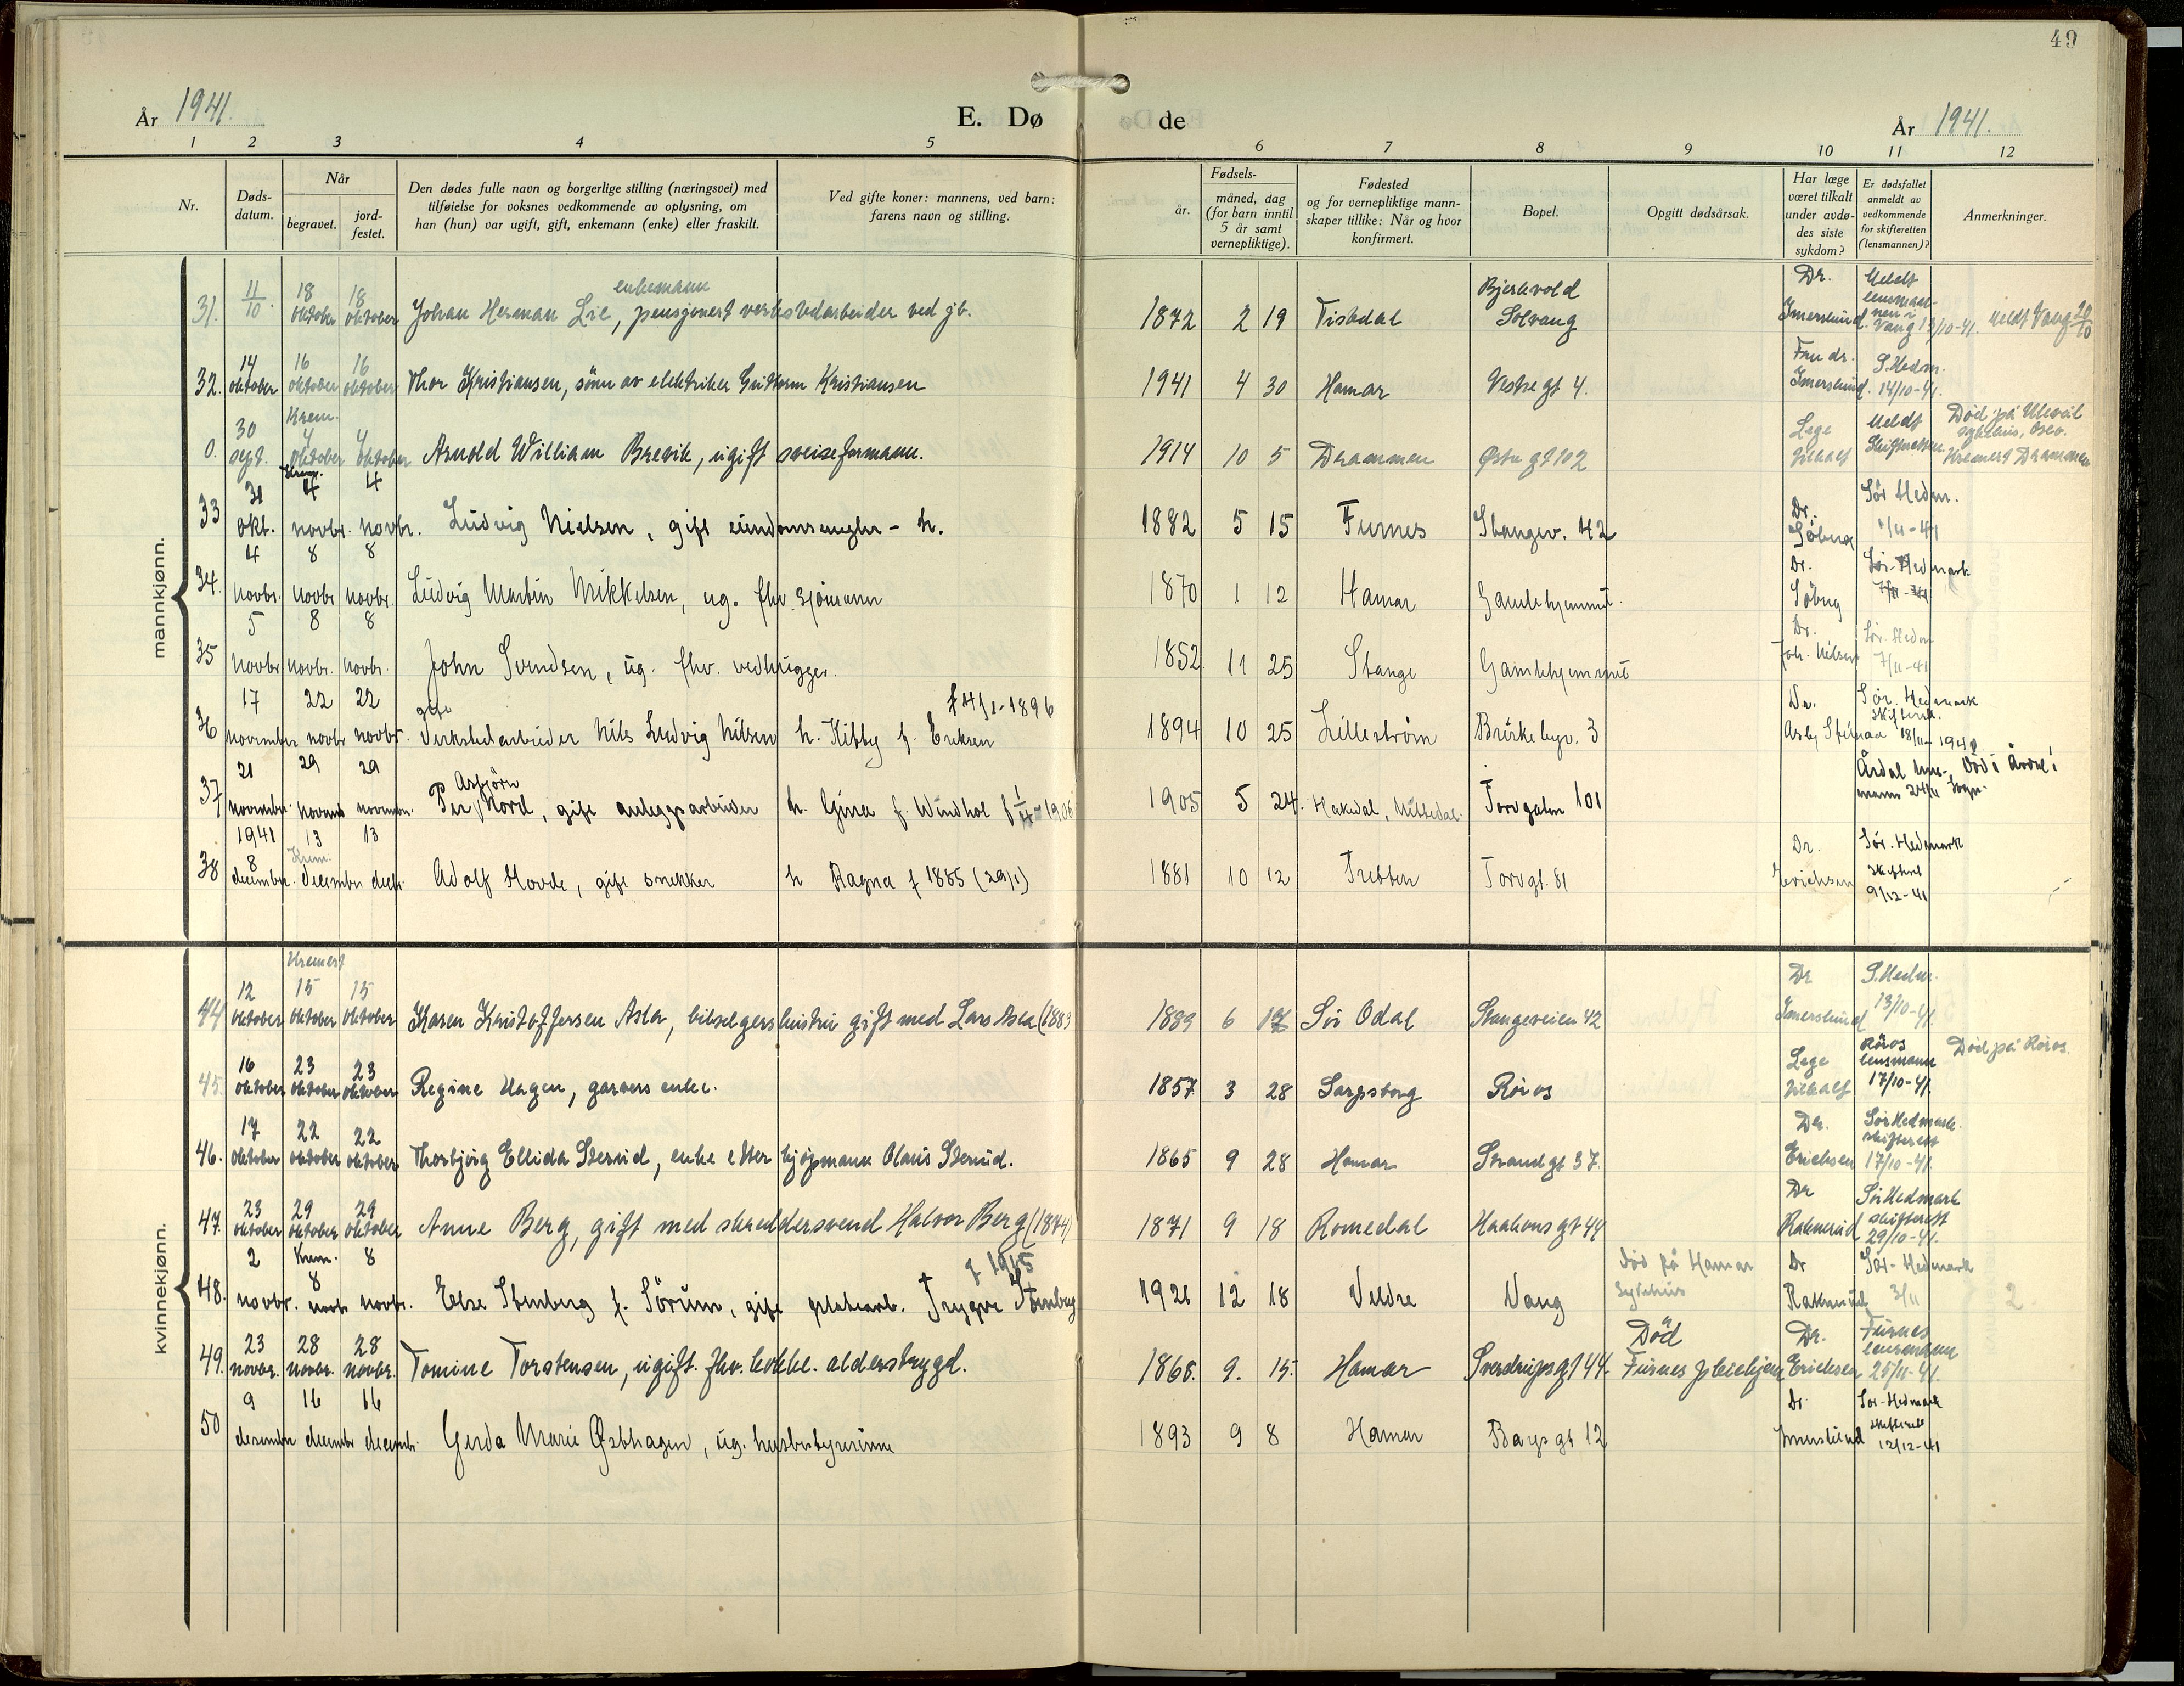 49
År 1941.
E. Døde
År 1941.
1 2 3 4 5 6 7 8 9 10 11 12
Nr.
Døds-
datum.
Når
begravet.
jord-
festet.
Den dødes fulle navn og borgerlige stilling (næringsvei) med
tilføielse for voksnes vedkommende av oplysning, om
han (hun) var ugift, gift, enkemann (enke) eller fraskilt.
Ved gifte koner: mannens, ved barn:
farens navn og stilling.
Fødsels-
år.
måned, dag
(for barn inntil
5 år samt
vernepliktige).
Fødested
og for vernepliktige mann-
skaper tillike: Når og hvor
konfirmert.
Bopel.
Opgitt dødsårsak.
Har læge
været tilkalt
under avdø-
des siste
sykdom?
Er dødsfallet
anmeldt av
vedkommende
for skifteretten
(lensmannen)?
Anmerkninger.
mannkjønn.
31. 11/10. 18 oktober 18 oktober Johan Herman Lie, enkemann pensjonert verkstedarbeider ved jb. 1872 2 19 Tisledal Bjerkvold Solvang Dr. Imerslund. Meldt lensmannen i Vang 13/10-41. Meldt Vang 20/10
32. 14 oktober 16 oktober 16 oktober Thor Kristiansen, sønn av elektriker Guttorm Kristiansen 1941 4 30 Hamar Vestre gt 4. Fru dr. Imerslund. S. Hedm. 14/10-41.
0. 30 sept. Krem. 4 oktober 4 oktober Arnold William Brevik, ugift sveiseformann. 1914 10 5 Drammen Østre gt 102 Lege tilkalt Meldt Skifteretten Død på Ullevål sykehus, Oslo. Kremert Drammen
33 31 okt. Krem. 4 novbr. 4 novbr. Ludvig Nielsen, gift eiendomsmegler - h. 1882 5 15 Furnes Stangev. 42 Dr. Söberg Sör Hedm. 1/11-41
34. 4 novbr. 8 novbr 8 novbr. Ludvig Martin Mikkelsen, ug. fhv. sjömann 1870 1 12 Hamar Gamlehjemmet. Dr. Söberg Sör-Hedmark 7/11-41
35 5 novbr 8 novbr. 8 novbr. John Svendsen, ug. fhv. vedhugger. 1852. 11 25 Stange Gamlehjemmet Dr. Joh. Nilsen Sör-Hedm 7/11-41
36 17 november 22 novbr 22 novbr. gift Verkstedarbeider Nils Ludvig Nilsen h. Kibby f. Eriksen f 14/1-1896 1894 10 25 Lilleström Briskebyv. 3 Dr. Sör. Hedemark skifterett. 18/11-1941
37 21 november. 29 novemb 29 novembr. Per Asbjörn Nord, gift anleggsarbeider h. Gina f. Windhol f 1/4-1906 1905 5 24. Hakadal, Nittedal. Torvgaten 101 Årdal lensmann 24/11 Död i Årdal i Sogn.
38 1941 8 december. Krem. 13 december 13 decbr. Adolf Hovde, gift snekker h. Ragna f 1885 (29/1) 1881 10 12 Tretten Torvgt. 81 Dr. Erichsen Sör. Hedmark skifteret 9/12-41
kvinnekjønn.
44 12 oktober Kremert 15 oktober 15 oktober Karen Kristoffersen Asla, bilselgers hustru gift med Lars Asla (1883 1889 6 17 Sör Odal Stangeveien 42 Dr Imerslund S. Hedm. 13/10-41.
45. 16 oktober 23 oktober 23 oktober Regine Hagen, garvers enke. 1857. 3 28 Sarpsborg Röros Lege tilkalt Röros lensmann 17/10-41. Død på Röros.
46. 17 oktober 22 oktober 22 oktober Thorbjörg Ellida Sterud, enke etter kjøpmann Olaus Sterud. 1865 9 28 Hamar Strandgt 37. Dr. Erichsen Sör Hedmark. skifterett 17/10-41.
47. 23 oktober 29 oktober 29 oktober Anne Berg, gift med skreddersvend Halvor Berg (1874) 1871 9 18 Romedal Haakons gt 44 Dr Rakmerud Sör Hedmark skifterett 29/10-41.
48. 2 novbr. Krem. 8 novbr 8 novbr. Else Stenberg f. Sörum, gift platearb. Trygve Stenberg f 1915 1921 12 18 Veldre Vang död på Hamar Sykehus Dr Rakmerud Sör-Hedmark 3/11 2.
49. 23 novbr. 28 novbr. 28 novbr. Tomine Torstensen, ugift. fhv. kokke. alderstrygd. 1868. 9. 15. Hamar Sverdrups gt 44. Död Furnes pleiehjem Dr. Erichsen Furnes lensmann 25/11-41.
50 9 desember 16 decembr 16 decembr. Gerda Marie Østhagen, ug. husbestyrerinne 1893 9 8 Hamar Bargs gt 12 Dr. Imerslund Sör-Hedmark skifterett 12/12-41